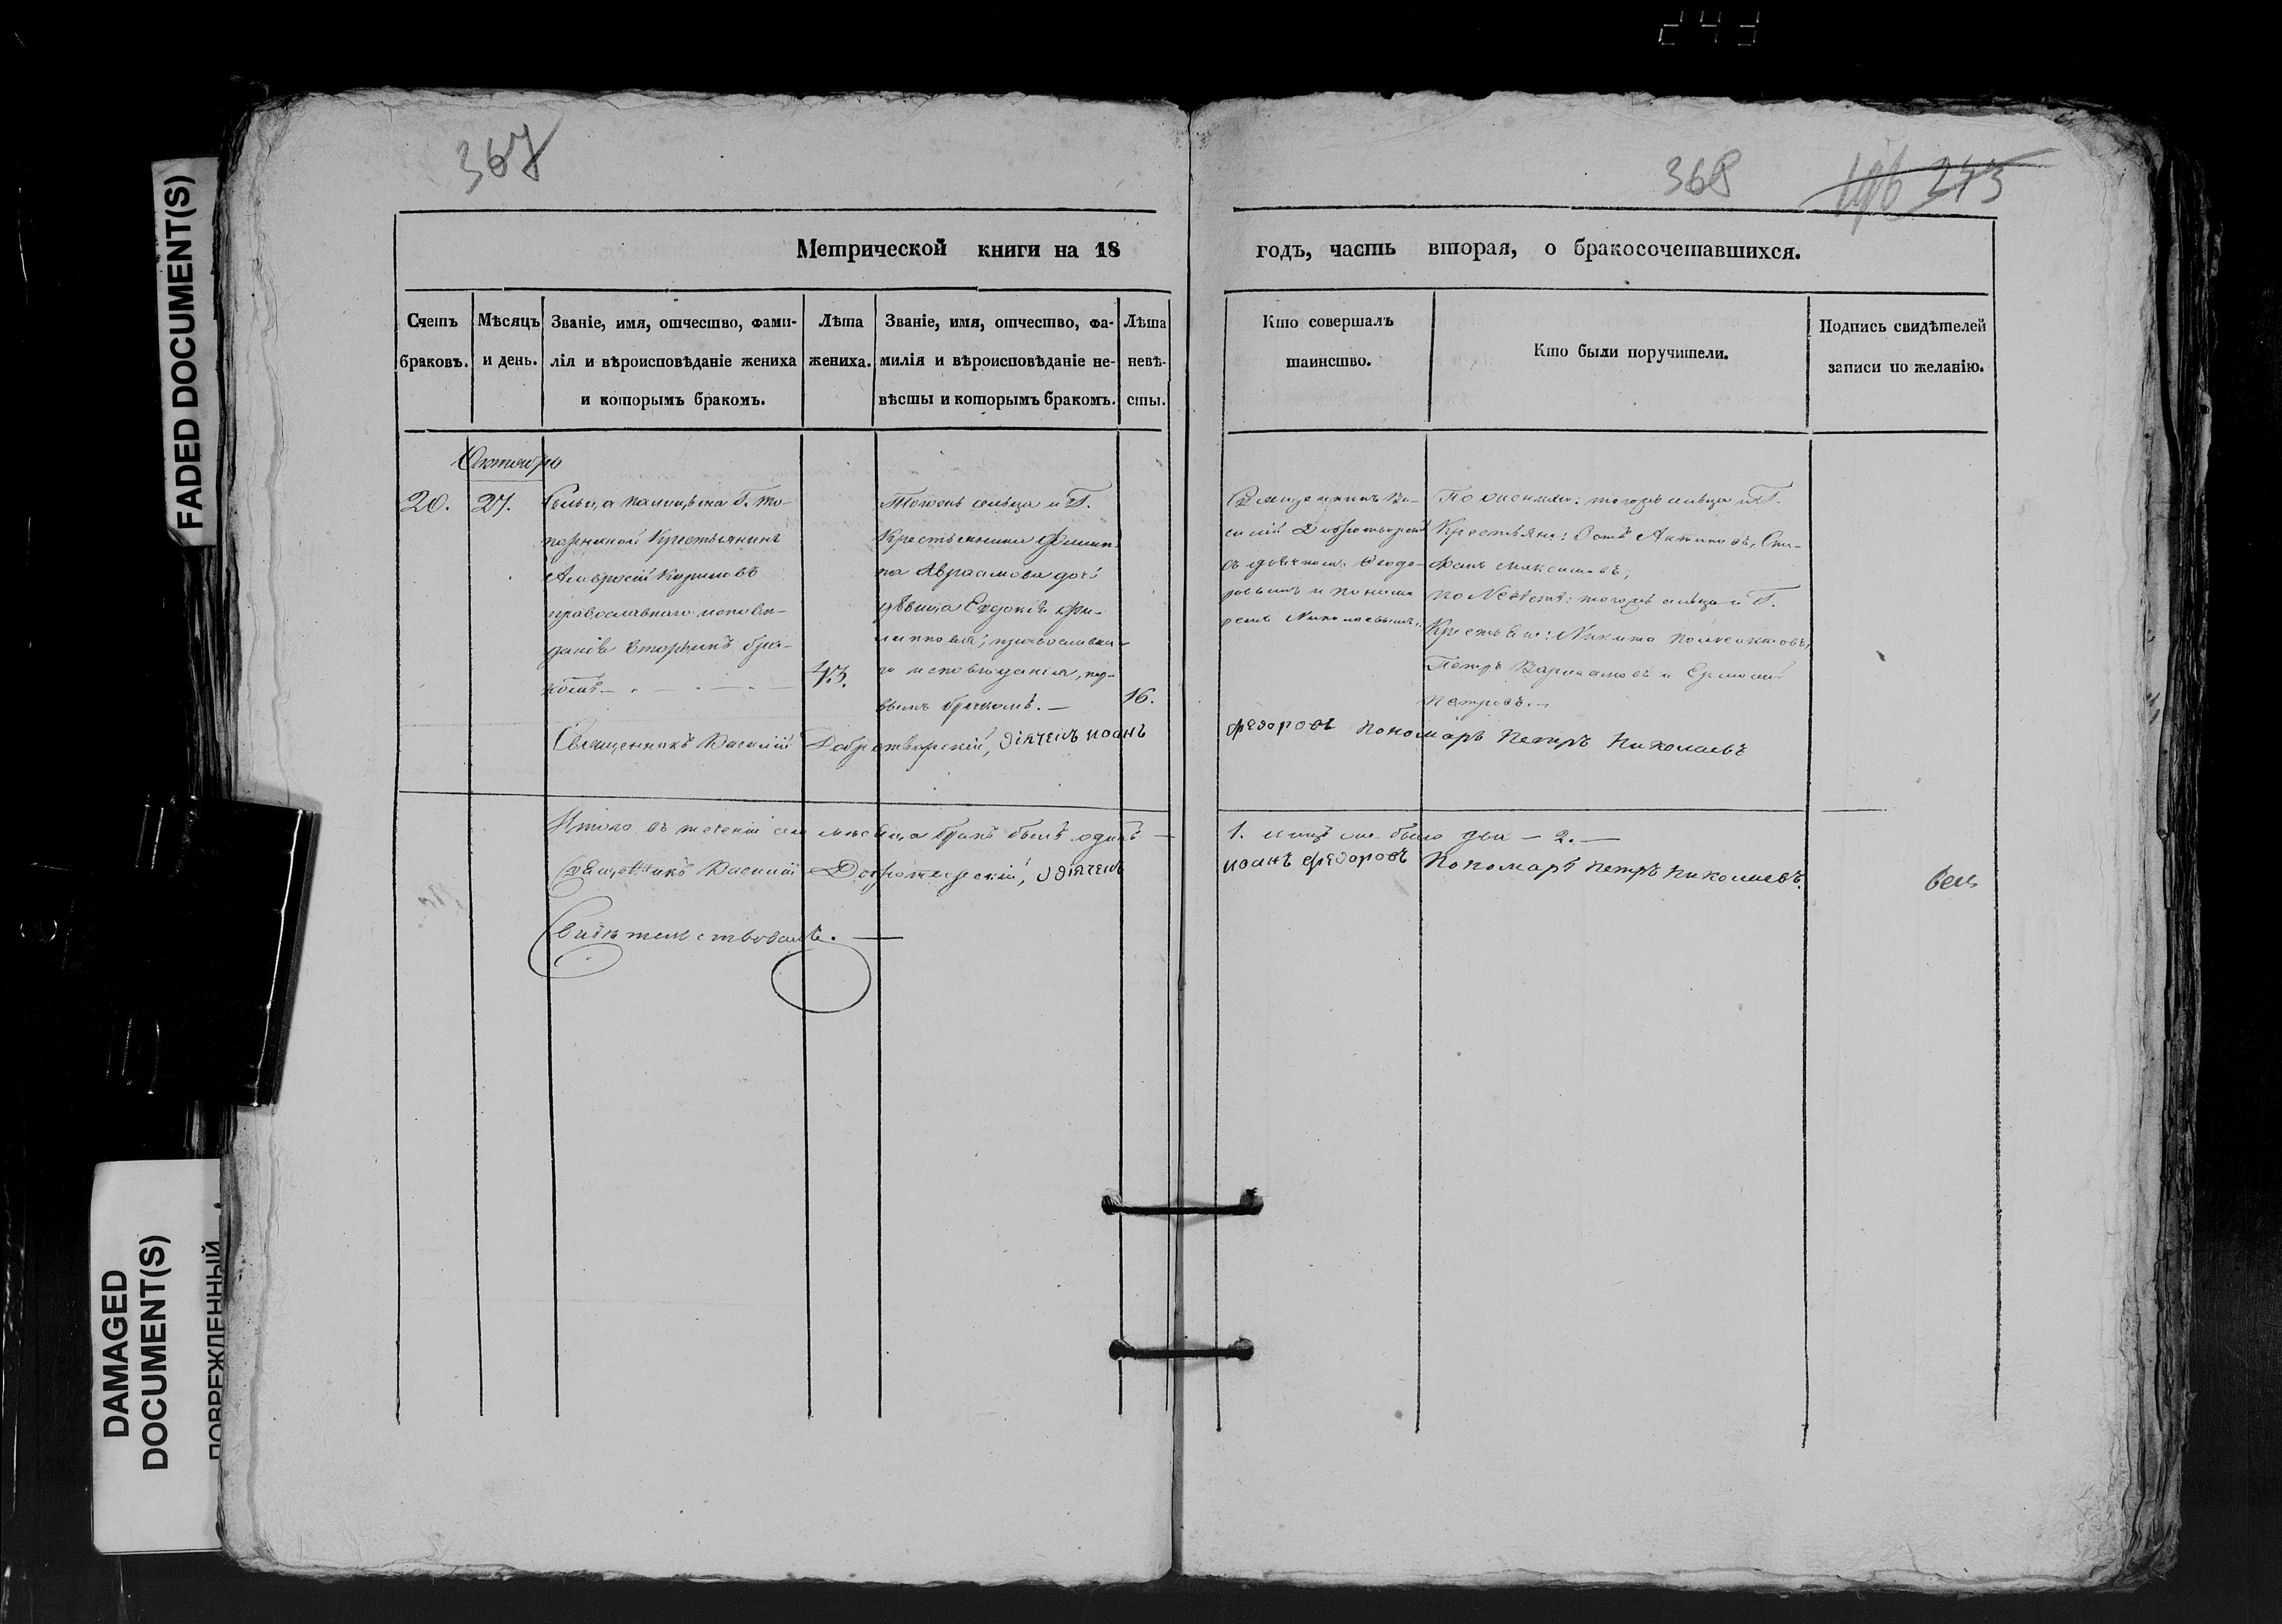 243
FADED DOCUMENT(S)
DAMAGED
DOCUMENT(S)
ПОВРЕЖДЕННЫЙ
367
368
Метрической книги на 18 годъ, часть вторая, о бракосочетавшихся.
Счетъ браковъ.
Мѣсяцъ и день.
Званіе, имя, отчество, фами-
лія и вѣроисповѣданіе жениха
и которымъ бракомъ.
Лѣта жениха.
Званіе, имя, отчество, фа-
милія и вѣроисповѣданіе не-
вѣсты и которымъ бракомъ.
Лѣта невѣ-
сты.
Кто совершалъ
таинство.
Кто были поручители.
Подпись свидѣтелей
записи по желанію.
Октоврь
20.
27.
Сельца
Крестьянинъ
Амвросій
православнаго исповѣ-
данія вторымъ бра-
комъ
43.
Тогожъ сельца и Г.
Крестьянина Филип-
па Авраамова дочь
дѣвица Евдокія Фи-
липпова, православна-
го исповѣданія, пер-
вымъ бракомъ. —
16.
Священникъ Ва-
силій Добротворскій
съ дьячкомъ Ѳеодо-
ровымъ и понома-
ремъ Николаевымъ.
По женихѣ: тогожъ сельца и Г.
Крестьяне: Антиповъ, Сте-
фанъ Максимовъ,
по Невѣстѣ: тогожъ сельца и Г.
Крестьяне: Никита
Петръ Варлаамовъ и
Петровъ. —
Священникъ Василій Добротворскій, дьячекъ иоанъ федоровъ Пономарь Петръ Николаевъ
Итого въ теченіи сего мѣсяца бракъ былъ одинъ — 1. лицъ было два — 2. —
Священникъ Василій Добротворскій, дьячекъ иоанъ федоровъ Пономарь Петръ Николаевъ.
Свидѣтельствовалъ. —